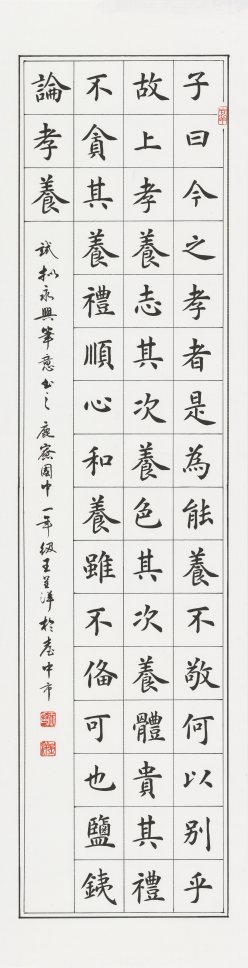 子曰今之孝者是為能養不敬何以別乎
故上孝養志其次養色其次養體貴其禮
不貪其養禮順心和養雖不俻可也鹽鐵
論孝養
試拟永興筆意書之鹿寮國中一年級王呈洋於臺中市